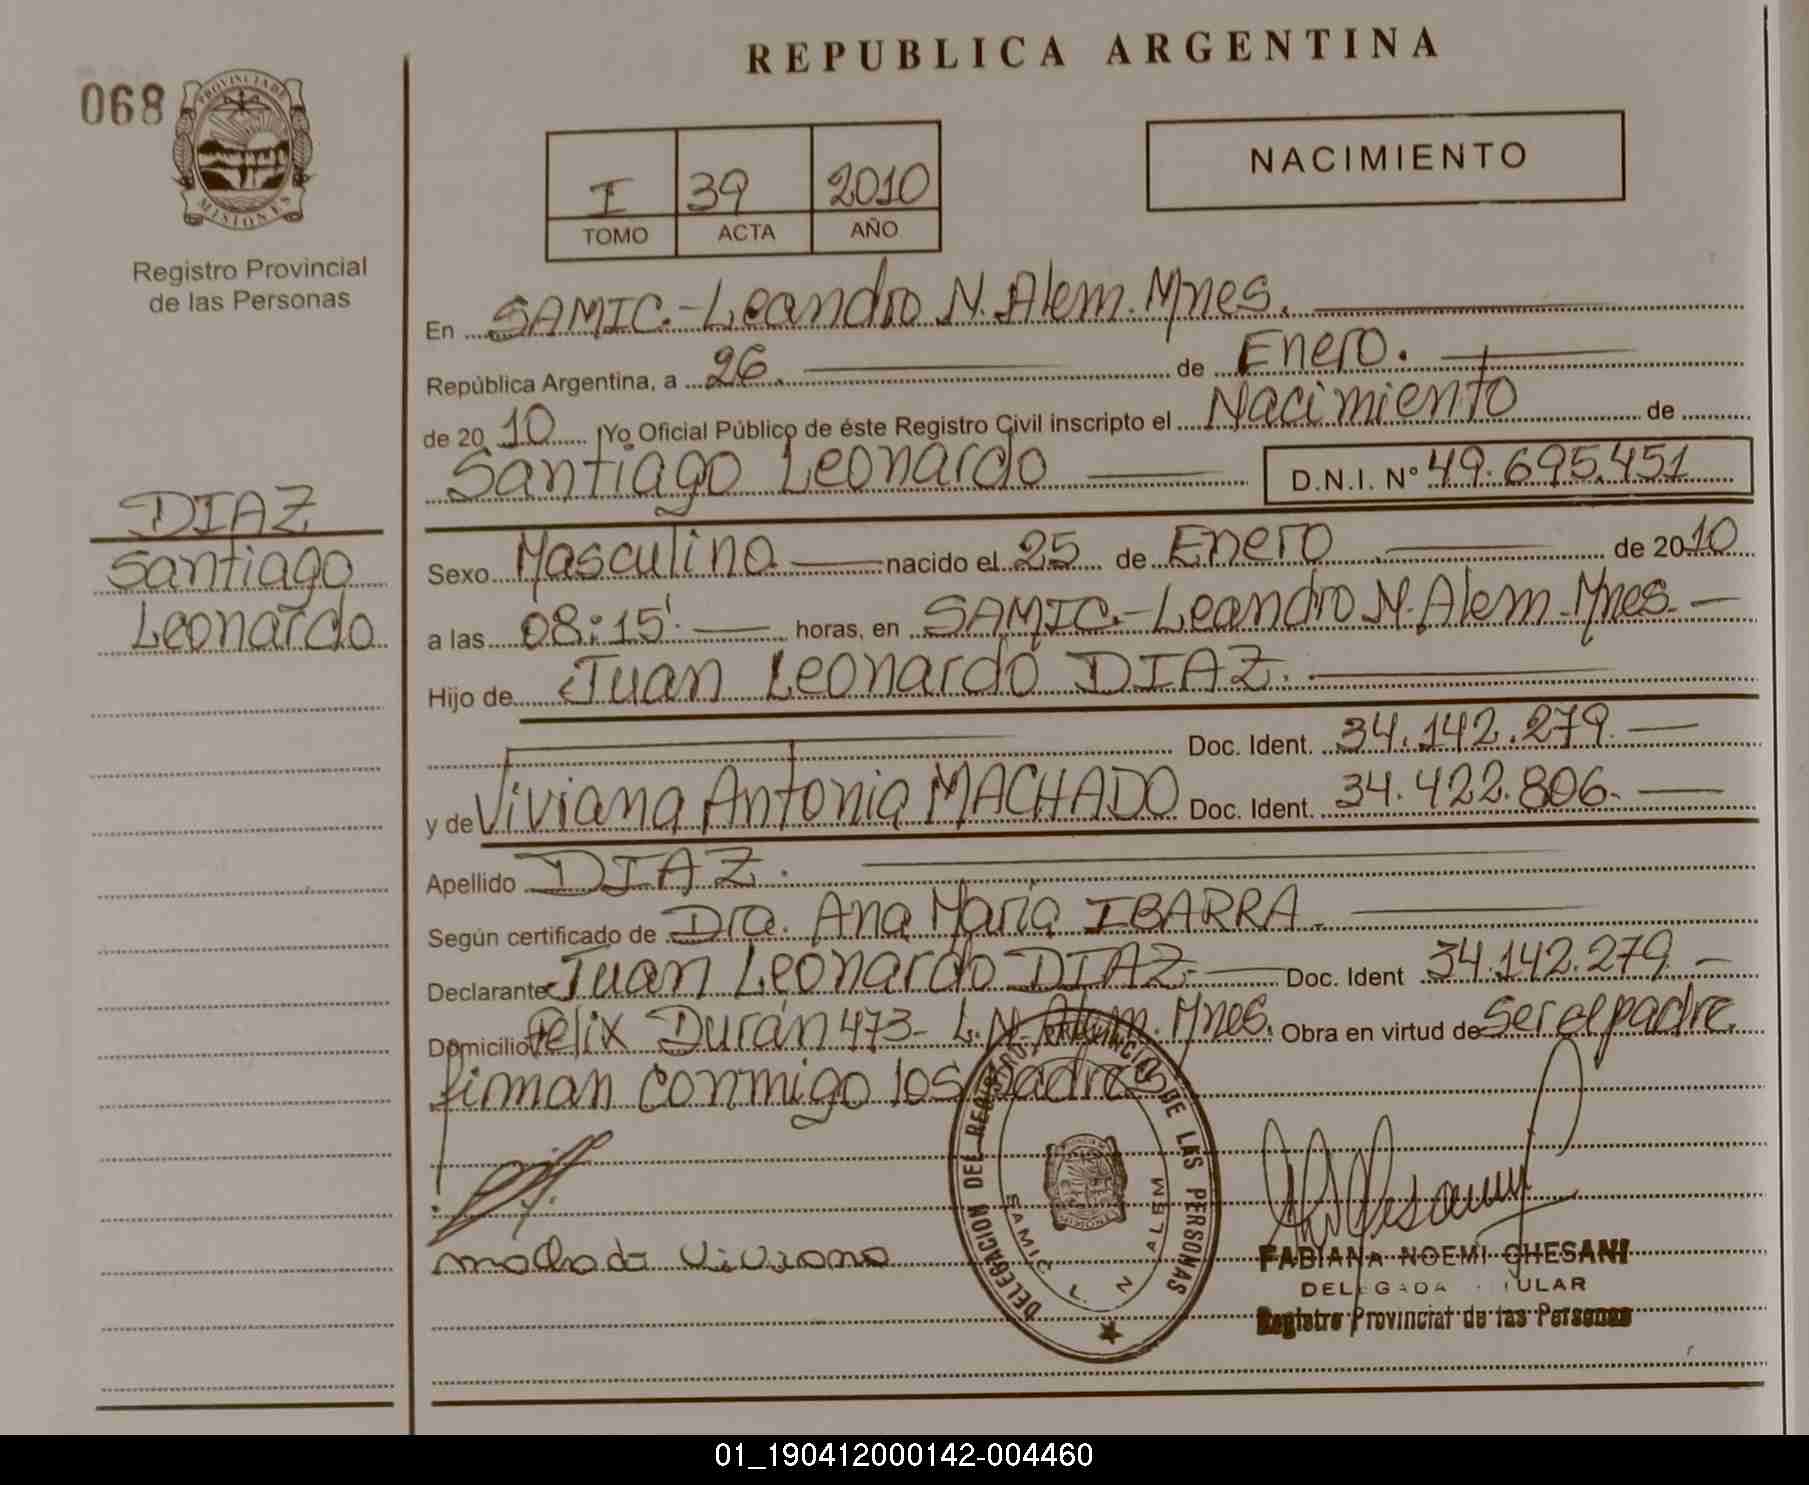 REPUBLICA ARGENTINA
068
PROVINCIA DE
MISIONES
Registro Provincial
de las Personas
I 39 2010
TOMO ACTA AÑO
NACIMIENTO
En SAMIC.-Leandro N. Alem. Mnes.
República Argentina, a 26 de Enero.
de 2010 Yo Oficial Público de éste Registro Civil inscripto el Nacimiento de
Santiago Leonardo D.N.I. N° 49.695.451
DIAZ
Santiago
Leonardo
Sexo Masculino nacido el 25 de Enero de 2010
a las 08:15' horas, en SAMIC.-Leandro N. Alem-Mnes.
Hijo de Juan Leonardo DIAZ.
Doc. Ident. 34.142.279.
y de Viviana Antonia MACHADO Doc. Ident. 34.422.806.
Apellido DIAZ.
Según certificado de Dra. Ana María IBARRA.
Declarante Juan Leonardo DIAZ- Doc. Ident 34.142.279
Domicilio Félix Durán 473- L.N. Alem. Mnes. Obra en virtud de Ser el padre
firman conmigo los padres
machado Viviana
DELEGACION DEL REGISTRO PROVINCIAL DE LAS PERSONAS
SAMIC L. N ALEM
FABIANA NOEMI GHESANI
DELEGADA TITULAR
Registro Provincial de las Personas
01_190412000142-004460